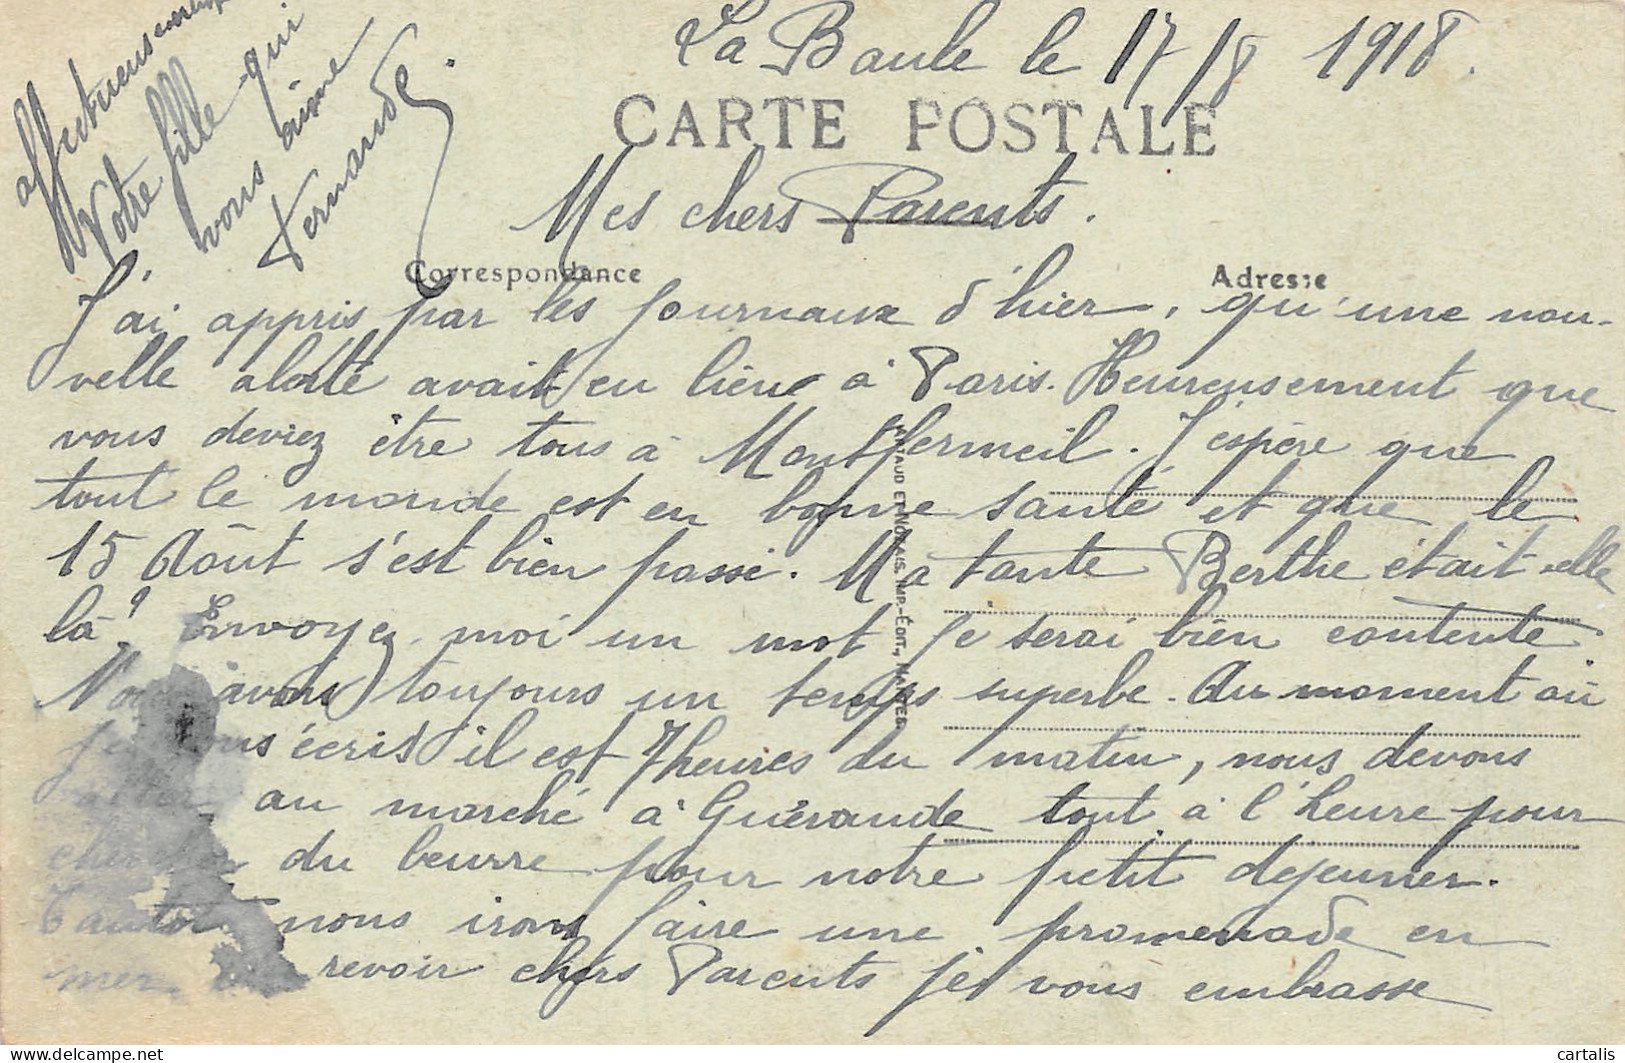 La Baule le 17/8 1918.
CARTE POSTALE
Mes chers Parents.
Correspondance
Adresse
J'ai appris par les journaux d'hier, qu'une nou-
velle alerte avait eu lieu à Paris. Heureusement que
vous deviez être tous à Montfermeil. J'espère que
tout le monde est en bonne santé et que le
15 Août s'est bien passé. Ma tante Berthe était-elle
là? Envoyez moi un mot je serai bien contente
Nous avons toujours un temps superbe. Au moment où
je vous écris il est 7 heures du matin, nous devons
aller au marché à Guérande tout à l'heure pour
chercher du beurre pour notre petit déjeuner.
Tantôt nous irons faire une promenade en
mer. Au revoir chers Parents je vous embrasse
affectueusement
Votre fille qui
vous aime
Fernande.
RATAUD ET NORAIS, IMP.-ÉDIT., NANTES
cartalis
delcampe.net